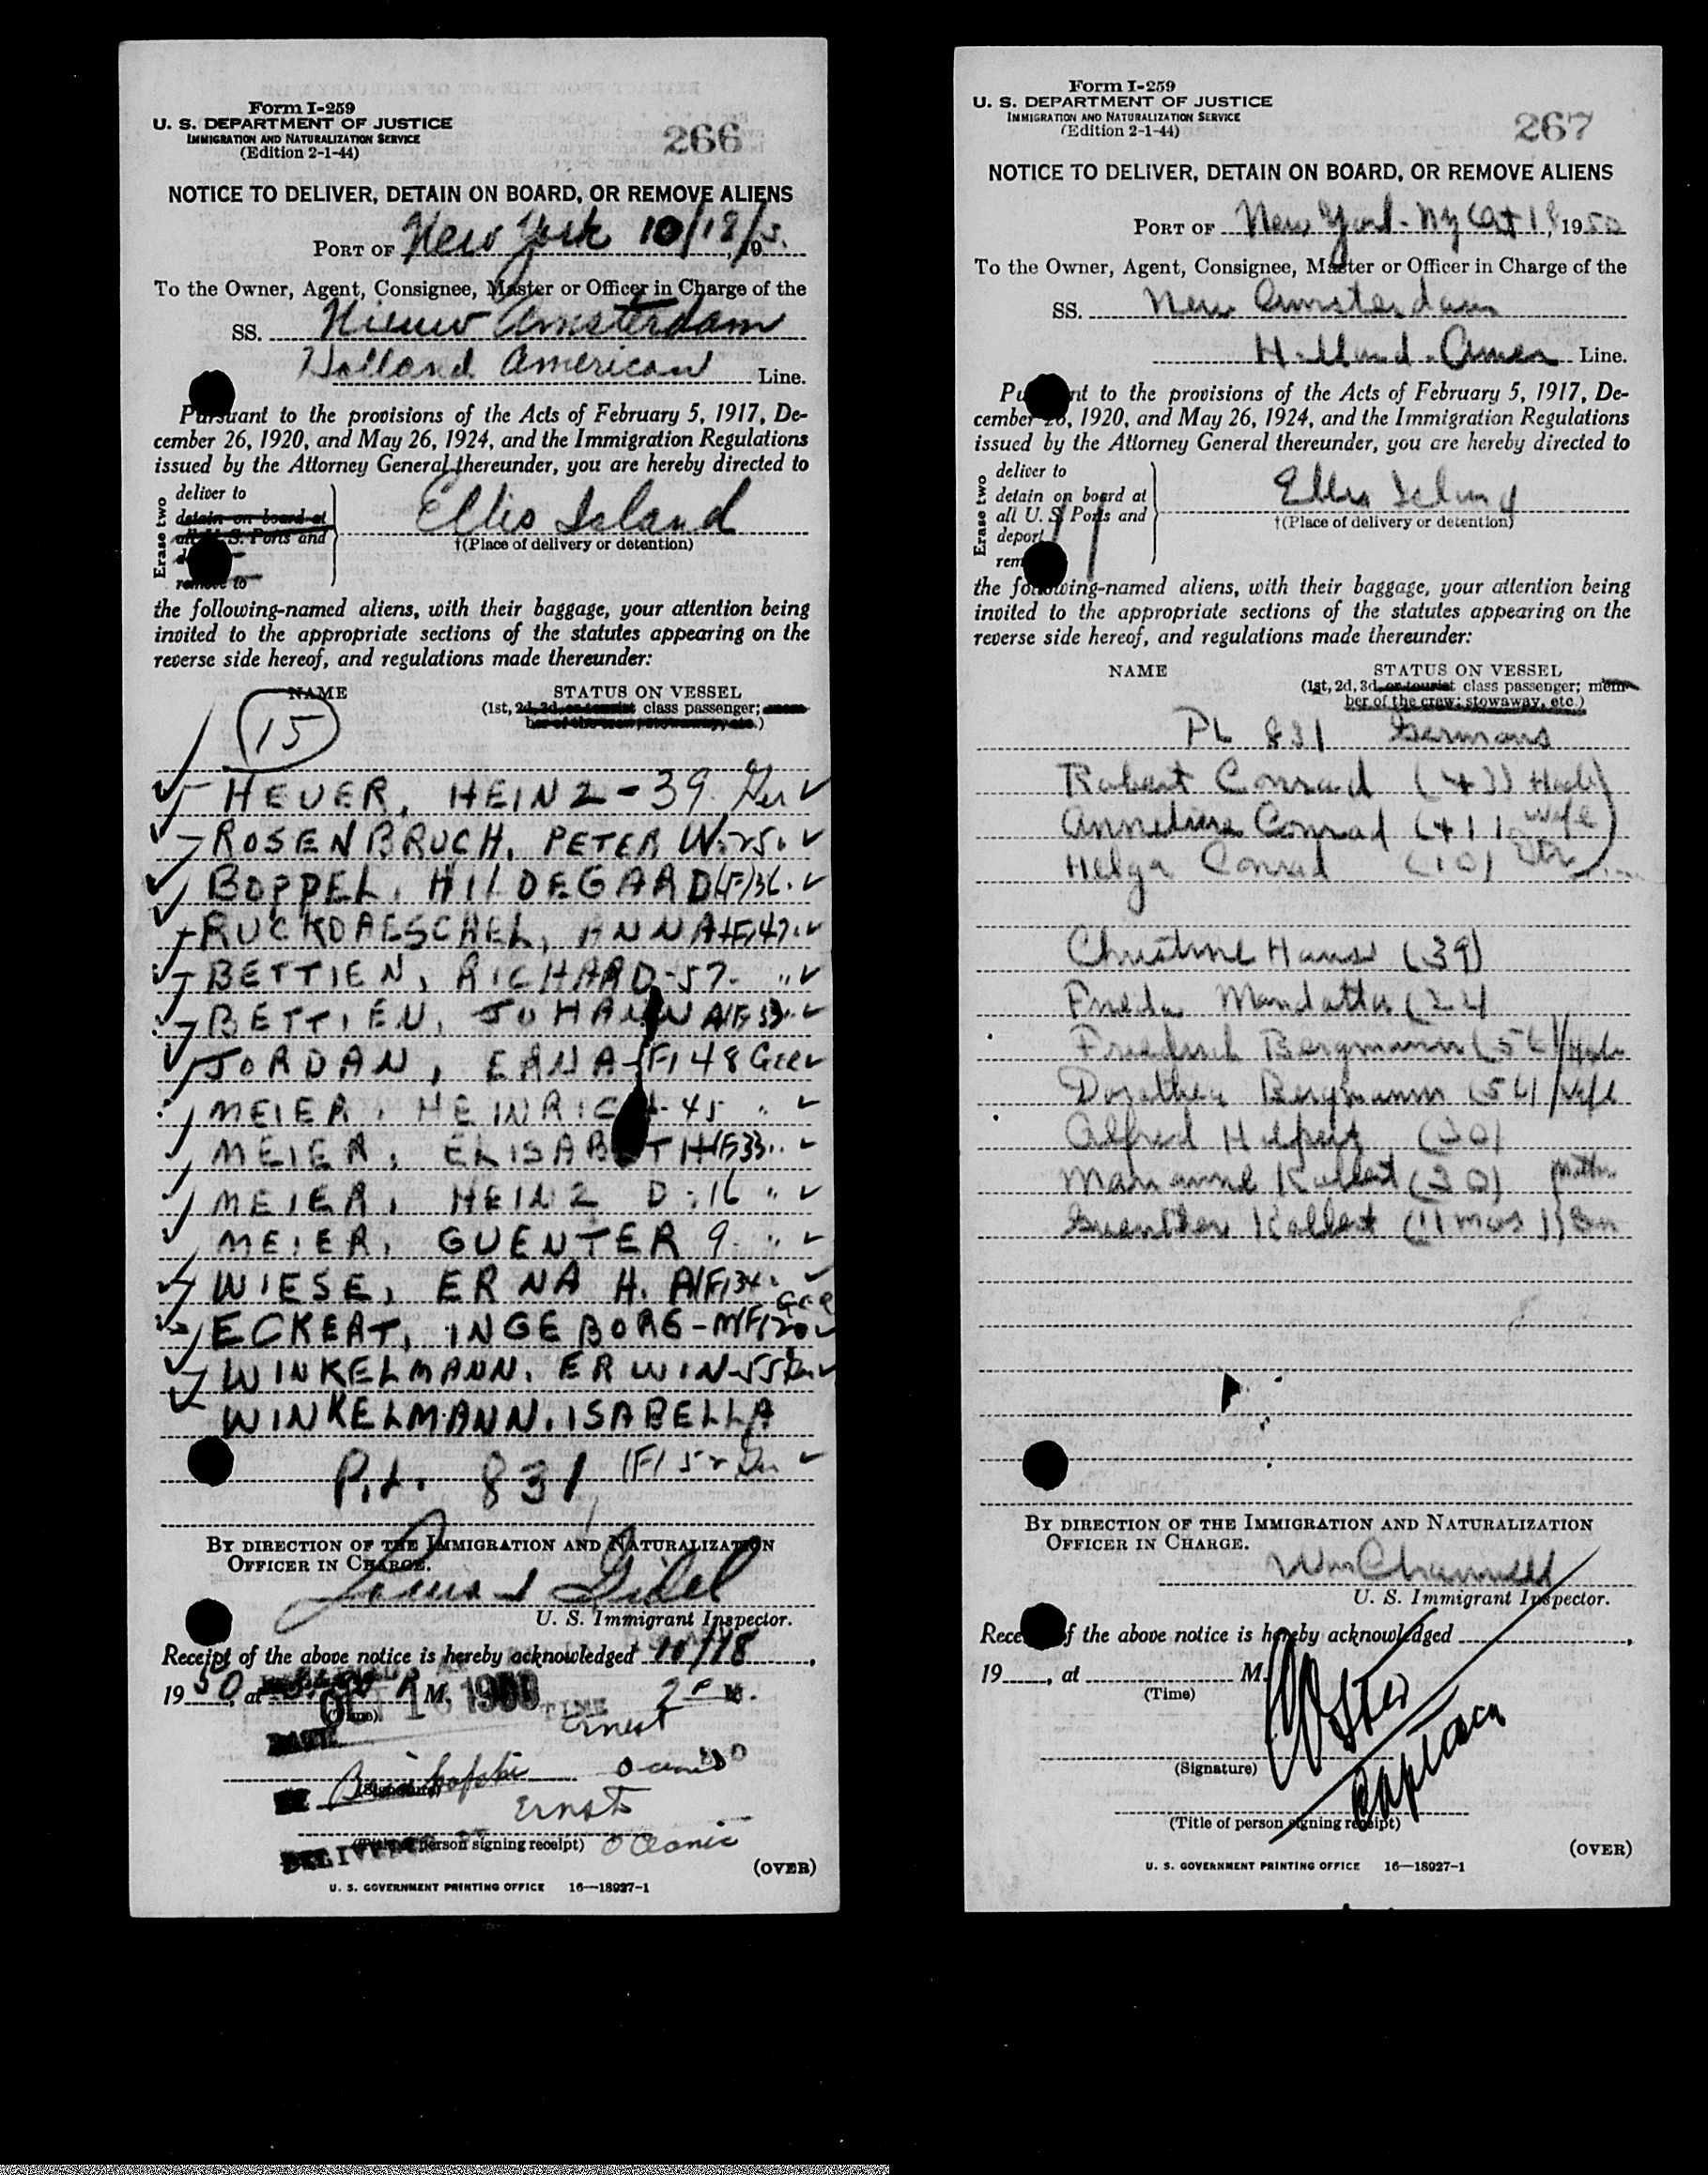 Form I-259
U. S. DEPARTMENT OF JUSTICE
IMMIGRATION AND NATURALIZATION SERVICE
(Edition 2-1-44)
266
NOTICE TO DELIVER, DETAIN ON BOARD, OR REMOVE ALIENS
PORT OF New York 10/18/5, 19
To the Owner, Agent, Consignee, Master or Officer in Charge of the
SS. Nieuw Amsterdam
Holland American Line.
Pursuant to the provisions of the Acts of February 5, 1917, De-
cember 26, 1920, and May 26, 1924, and the Immigration Regulations
issued by the Attorney General thereunder, you are hereby directed to
Erase two
deliver to
detain on board at
all U. S. Ports and
remove to
Ellis Island
†(Place of delivery or detention)
the following-named aliens, with their baggage, your attention being
invited to the appropriate sections of the statutes appearing on the
reverse side hereof, and regulations made thereunder:
NAME STATUS ON VESSEL
(1st, 2d, 3d, or tourist class passenger; mem-
ber of the crew; stowaway, etc.)
15
HEUER, HEINZ - 39 Ger
ROSENBRUCH, PETER W. 25.
BOPPEL, HILDEGARD (F) 36.
RUCKDAESCHEL, ANNA (F) 47.
BETTIEN, RICHARD - 57. "
BETTIEN, JOHANNA (F) 53 "
JORDAN, ERNA (F) 48 Ger
MEIER, HEINRICH - 45 "
MEIER, ELISABETH (F) 33 "
MEIER, HEINZ D. 16 "
MEIER, GUENTER 9 "
WIESE, ERNA H. A (F) 34.
ECKERT, INGEBORG - M (F) 20 Ger
WINKELMANN, ERWIN - 55 Ger
WINKELMANN, ISABELLA
P.L. 831 (F) 52 Ger
BY DIRECTION OF THE IMMIGRATION AND NATURALIZATION
OFFICER IN CHARGE.
U. S. Immigrant Inspector.
Receipt of the above notice is hereby acknowledged 10/18,
1950, at M.
(Time)
OCT 1 1950
TIME
DATE
Ernest
(Signature)
BY
Ernst
(Title of person signing receipt) Oceanic
(OVER)
U. S. GOVERNMENT PRINTING OFFICE 16—18927-1
Form I-259
U. S. DEPARTMENT OF JUSTICE
IMMIGRATION AND NATURALIZATION SERVICE
(Edition 2-1-44)
267
NOTICE TO DELIVER, DETAIN ON BOARD, OR REMOVE ALIENS
PORT OF New York - NY Oct 18, 1950
To the Owner, Agent, Consignee, Master or Officer in Charge of the
SS. New Amsterdam
Holland Amer Line.
Pursuant to the provisions of the Acts of February 5, 1917, De-
cember 26, 1920, and May 26, 1924, and the Immigration Regulations
issued by the Attorney General thereunder, you are hereby directed to
Erase two
deliver to
detain on board at
all U. S. Ports and
deport
rem
Ellis Island
†(Place of delivery or detention)
the following-named aliens, with their baggage, your attention being
invited to the appropriate sections of the statutes appearing on the
reverse side hereof, and regulations made thereunder:
NAME STATUS ON VESSEL
(1st, 2d, 3d, or tourist class passenger; mem-
ber of the crew; stowaway, etc.)
PL 831 Germans
Robert Conrad (43) Husb
Anneliese Conrad (41) wife
Helga Conrad (10) dtr
Christine Hauser (39)
Frieda (24)
Friedrich Bergmann (56) Husb
Dorothea Bergmann (56) wife
Alfred (20)
Marianne Kollert (30) Mother
Guenther Kollert (11 mos) Son
BY DIRECTION OF THE IMMIGRATION AND NATURALIZATION
OFFICER IN CHARGE.
U. S. Immigrant Inspector.
Receipt of the above notice is hereby acknowledged ,
19 , at M.
(Time)
(Signature)
Captain
(Title of person signing receipt)
(OVER)
U. S. GOVERNMENT PRINTING OFFICE 16—18927-1